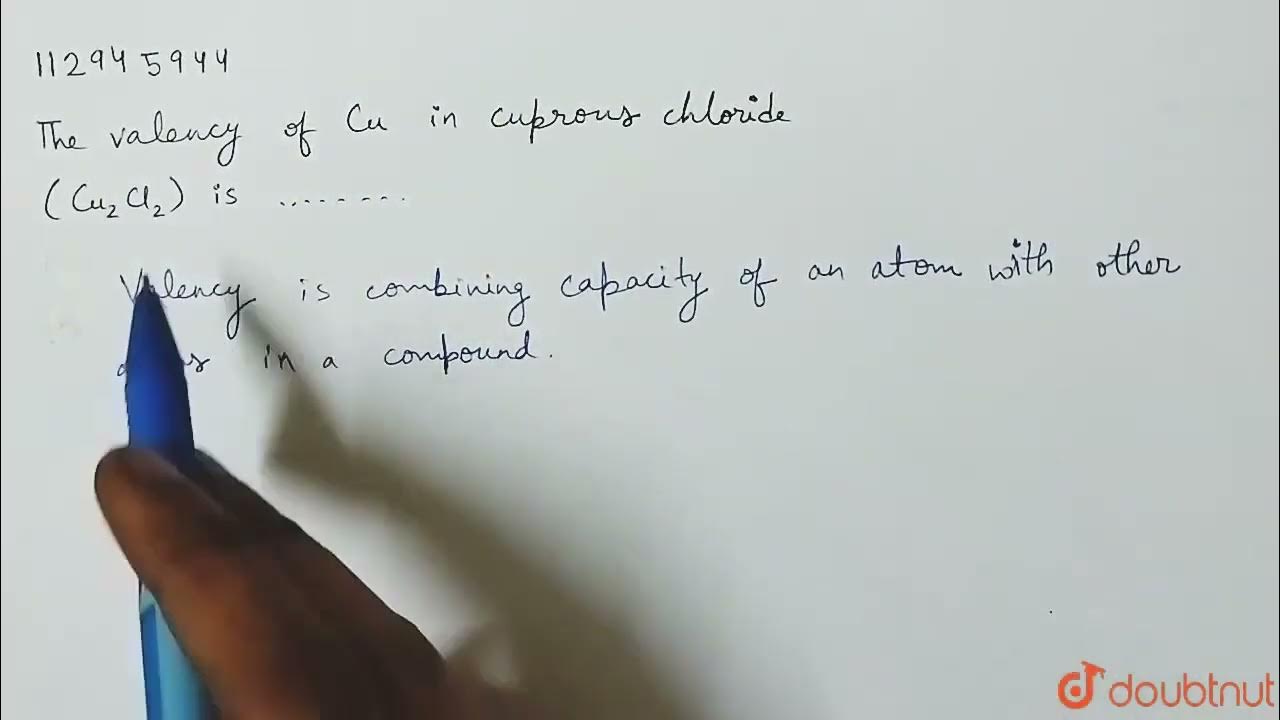 11294 5944
The valency of Cu in cuprous chloride
(Cu₂Cl₂) is ........
Valency is combining capacity of an atom with other
in a compound.
doubtnut